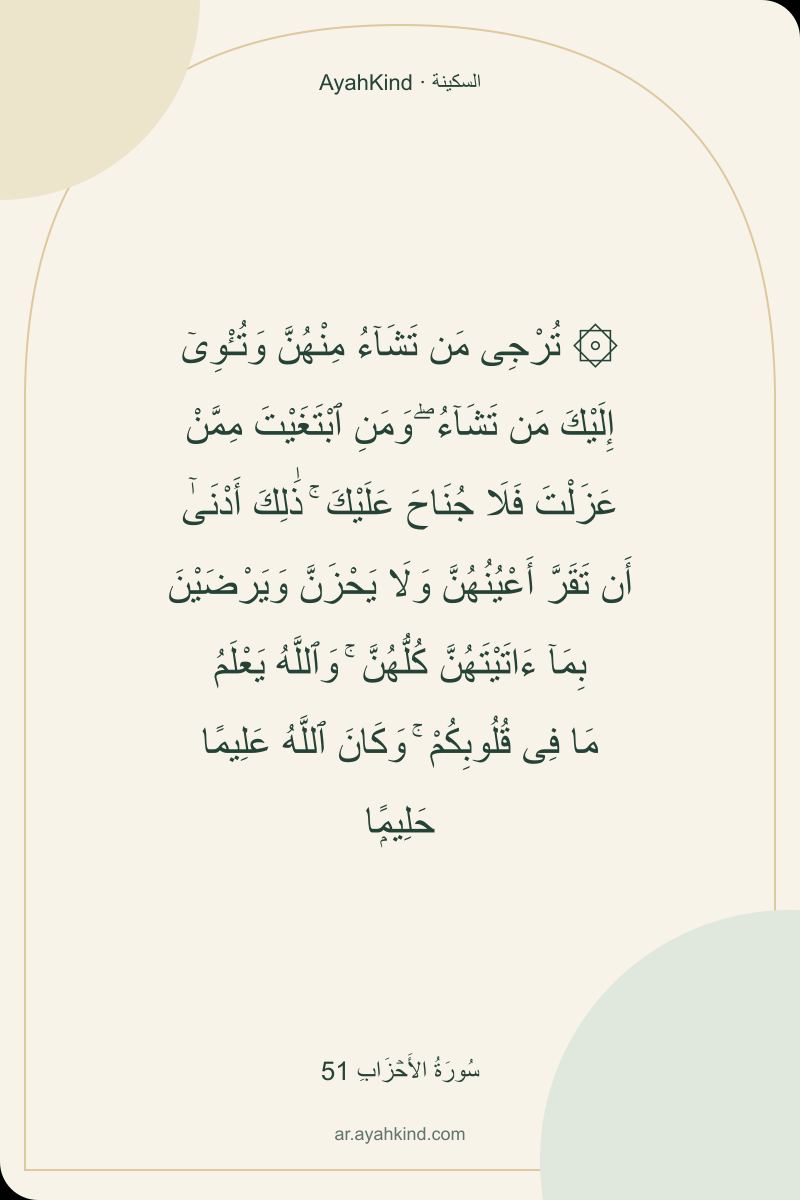 AyahKind · السكينة
۞ تُرْجِى مَن تَشَآءُ مِنْهُنَّ وَتُـْٔوِىٓ
إِلَيْكَ مَن تَشَآءُ ۖ وَمَنِ ٱبْتَغَيْتَ مِمَّنْ
عَزَلْتَ فَلَا جُنَاحَ عَلَيْكَ ۚ ذَٰلِكَ أَدْنَىٰٓ
أَن تَقَرَّ أَعْيُنُهُنَّ وَلَا يَحْزَنَّ وَيَرْضَيْنَ
بِمَآ ءَاتَيْتَهُنَّ كُلُّهُنَّ ۚ وَٱللَّهُ يَعْلَمُ
مَا فِى قُلُوبِكُمْ ۚ وَكَانَ ٱللَّهُ عَلِيمًا
حَلِيمًۭا
سُورَةُ الأَحۡزَابِ 51
ar.ayahkind.com